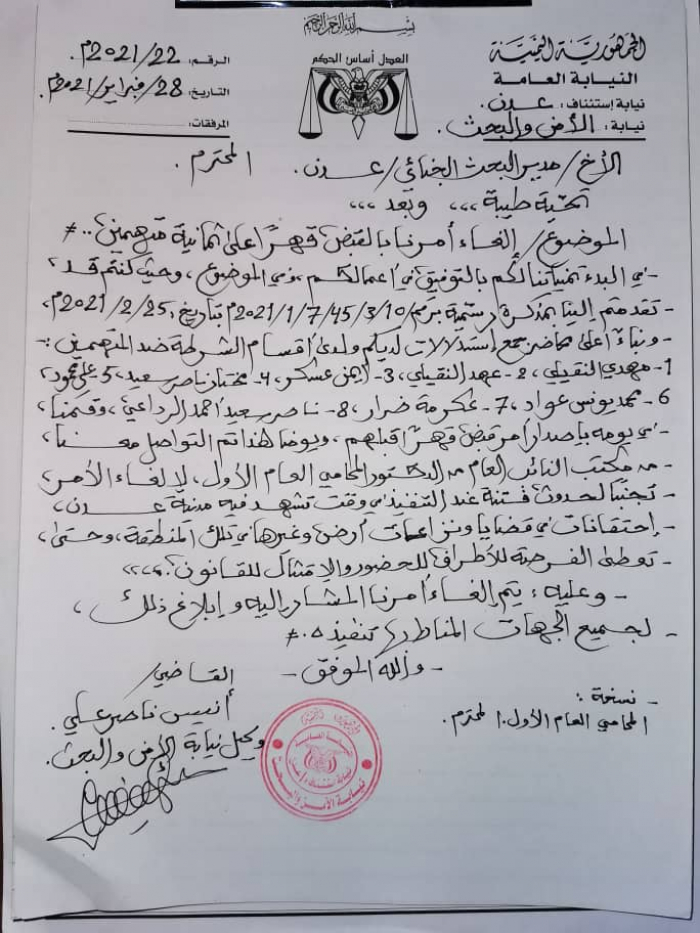 بسم الله الرحمن الرحيم
الجمهورية اليمنية
النيابة العامة
نيابة إستئناف: عدن.
نيابة: الأمن والبحث.
العدل أساس الحكم
الرقم: 22/2021م.
التاريخ: 28/فبراير/2021م.
المرفقات:
الأخ/ مدير البحث الجنائي/ عدن. المحترم.
تحية طيبة ،،، وبعد ،،،
الموضوع/ إلغاء أمرنا بالقبض قهراً على ثمانية متهمين..#
- في البدء تمنياتنا لكم بالتوفيق في أعمالكم، وفي الموضوع، وحيث كنتم قد،
- تقدمتم إلينا بمذكرة رسمية برقم/10/3/45/7/1/2021م بتاريخ: 25/2/2021م،
- وبناءً على محاضر جمع استدلالات لديكم ولدى أقسام الشرطة ضد المتهمين:-
1- مهدي النقيلي، 2- عهد النقيلي، 3- أيمن عسكر، 4- مختار ناصر سعيد، 5- علي محمود
6- محمد يونس عواد، 7- عكرمة ضرار، 8- ناصر سعيد أحمد الرداعي، وقمنا،
- في يومه بإصدار أمر قبض قهراً قبلهم، ويومنا هذا تم التواصل معنا،
- من مكتب النائب العام من الدكتور المحامي العام الأول، لإلغاء الأمر،
- تجنباً لحدوث فتنة عند التنفيذ في وقت تشهد فيه مدينة عدن،
- إحتقانات في قضايا ونزاعات أرض وغيرها في تلك المنطقة، وحتى،
- تعطى الفرصة للأطراف للحضور والإمتثال للقانون،،،
- وعليه؛ يتم إلغاء أمرنا المشار إليه وإبلاغ ذلك،
- لجميع الجهات المناط بها تنفيذه.#
- والله الموفق -
القاضي/
أنيس ناصر علي.
وكيل نيابة الأمن والبحث.
- نسخة:
المحامي العام الأول: المحترم.
النيابة العامة
نيابة الأمن والبحث